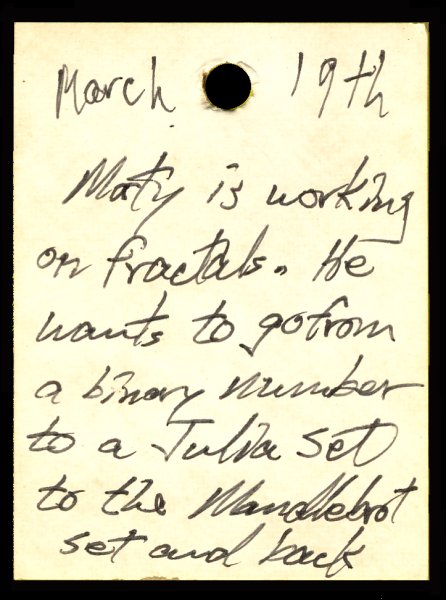 March 19th
Maty is working
on fractals. He
wants to go from
a binary number
to a Julia set
to the Mandlebrot
set and back